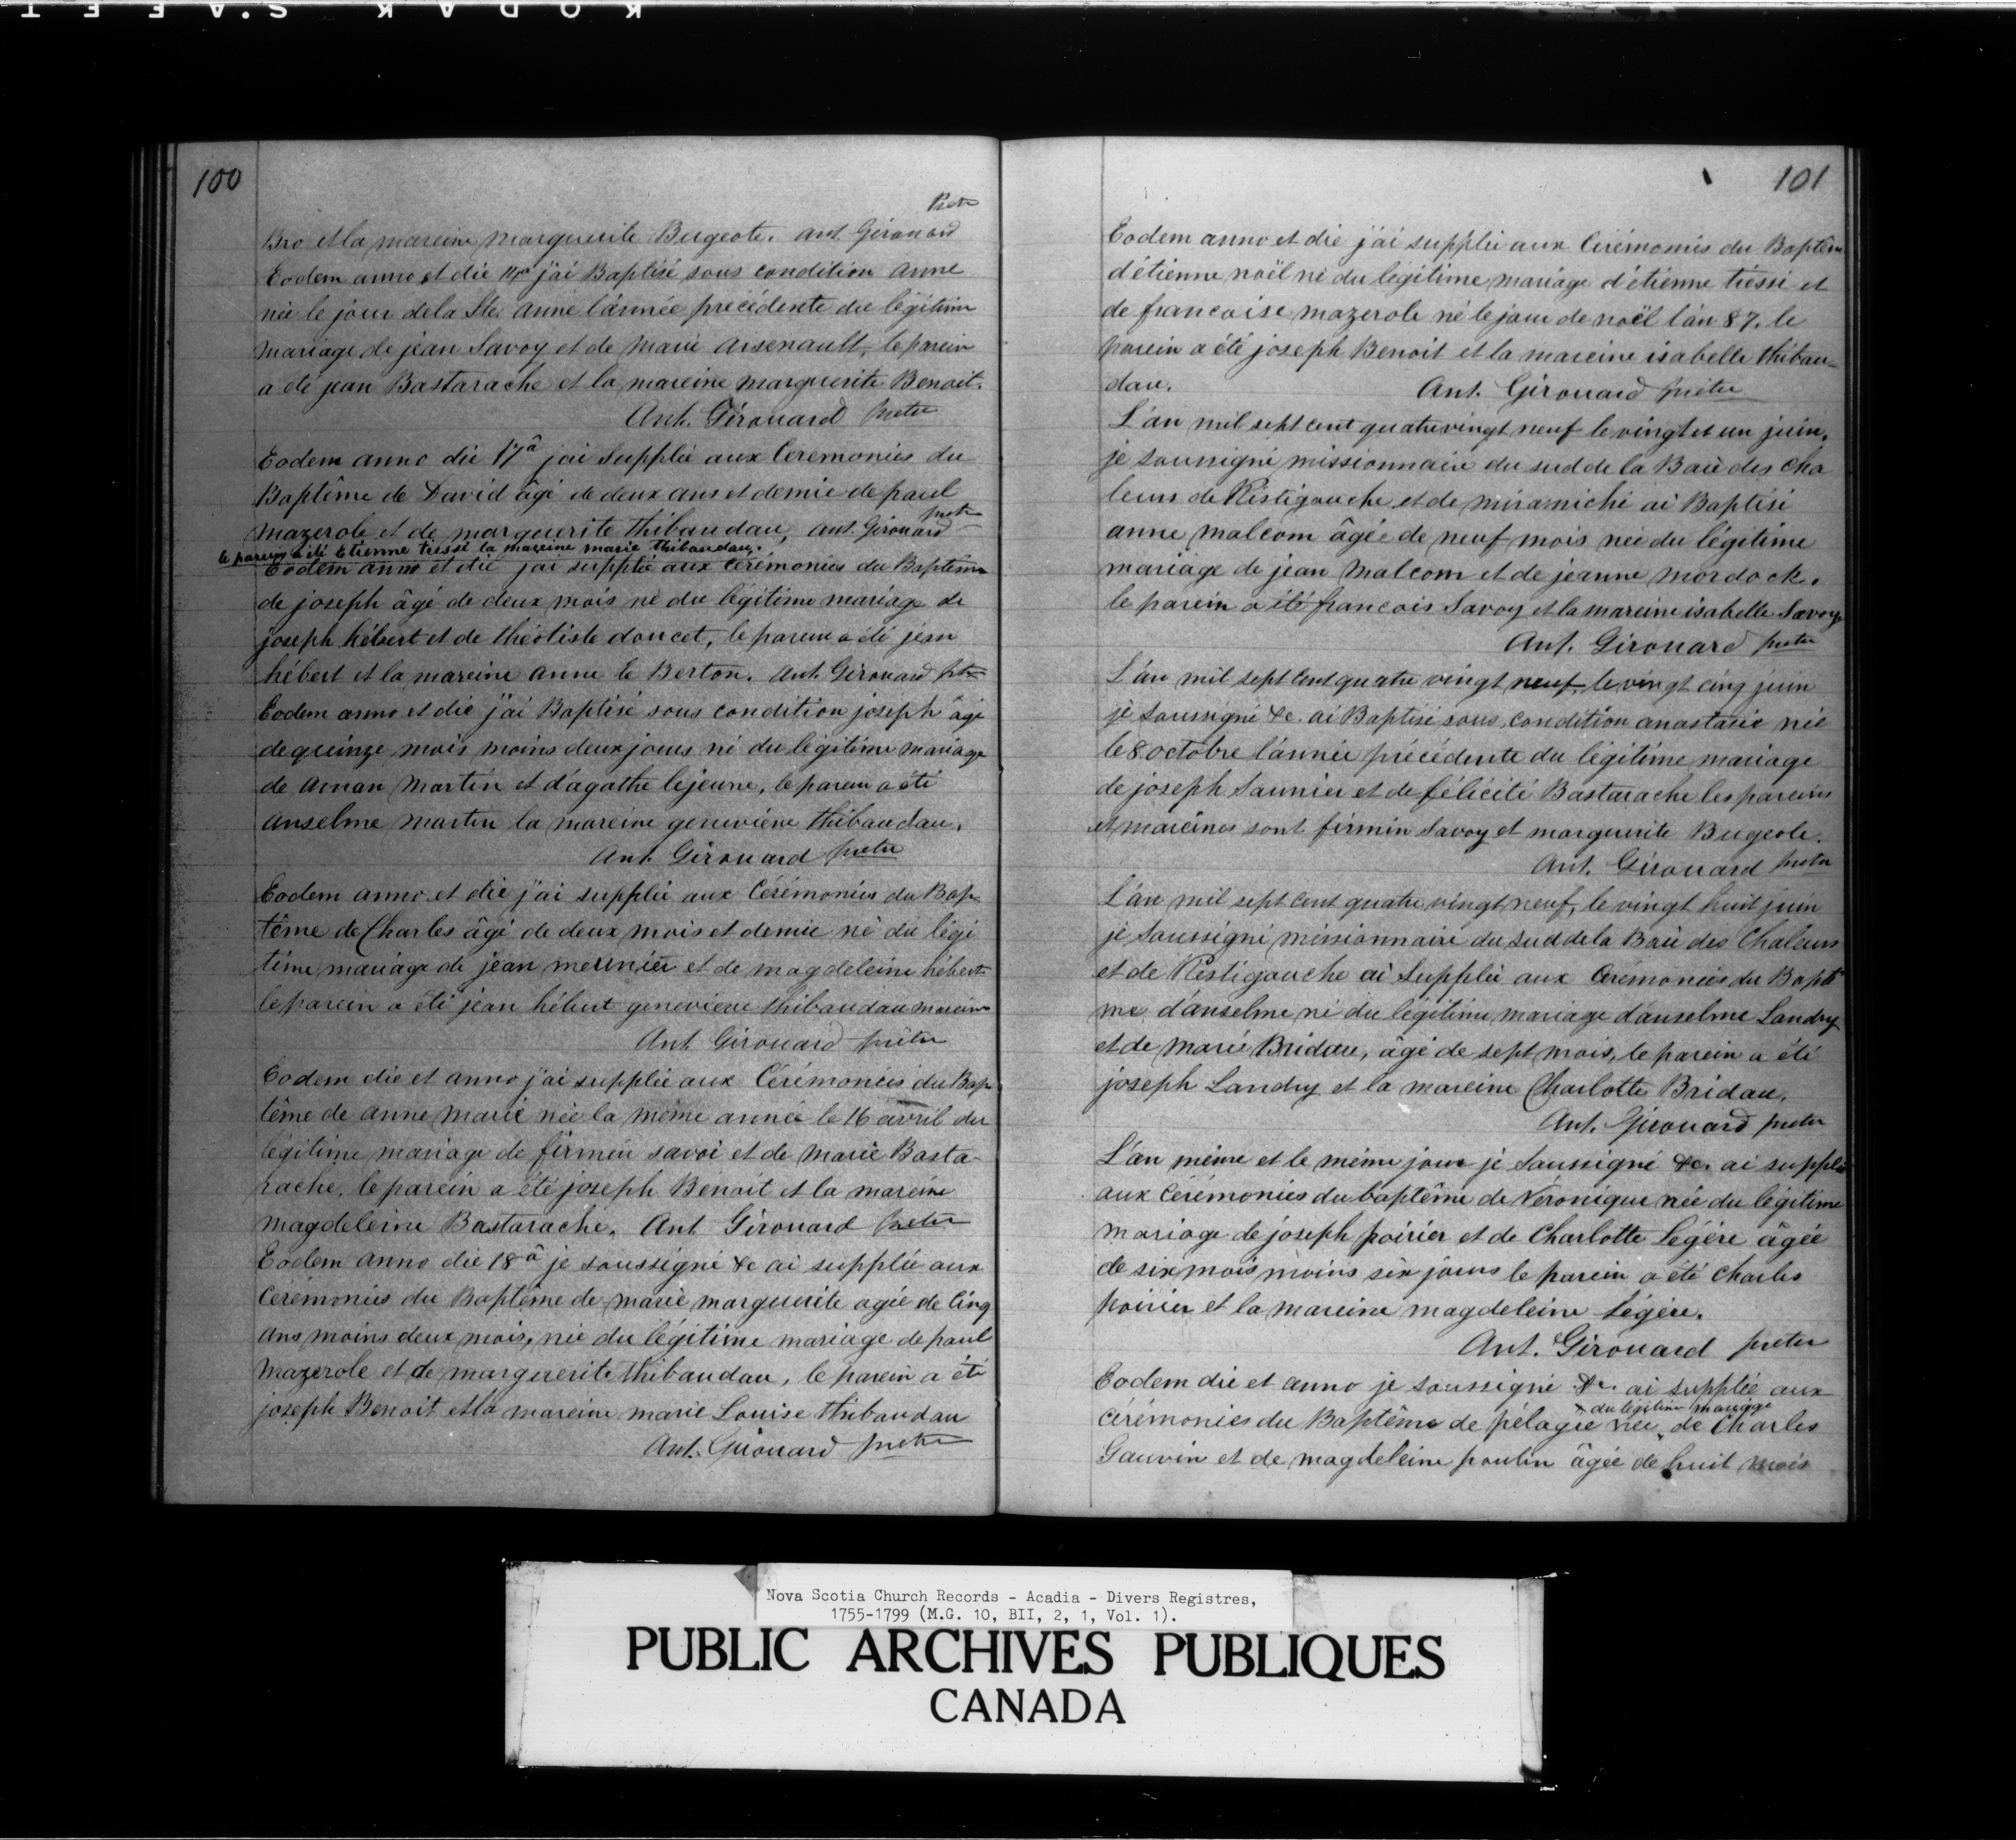 KODAK S.AFET
100
Prêtre
Bro et la mareine Marguerite Bugeote. Ant Girouard
Eodem anno et die j'ai Baptisé sous condition Anne
née le jour de la Ste. Anne l'année précédente du légitime
mariage de jean Savoy et de Marie Arsenault, le parein
a été jean Bastarache et la mareine marguerite Benoit.
Ant. Girouard prêtre
Eodem anno die 17â j'ai Supplée aux Ceremonies du
Baptême de David âgé de deux ans et demie de paul
prêtre
mazerole et de marguerite thibaudau, Ant. Girouard
le parein a été Etienne tressi la mareine marie thibaudau.
Eodem anno et die j'ai supplée aux Cérémonies du Baptême
de joseph âgé de deux mois né du légitime mariage de
joseph hébert et de théotiste doucet, le parein a été jean
hébert et la mareine anne le Berton. Ant. Girouard ptre
Eodem anno et die j'ai Baptisé sous condition joseph âgé
de quinze mois moins deux jours né du légitime mariage
de Aman Martin et d'agathe lejeune, le parein a été
anselme martin la mareine genevieve thibaudau.
Ant. Girouard prêtre
Eodem anno et die j'ai supplée aux Cérémonies du Bap-
tême de Charles âgé de deux mois et demie né du légi
time mariage de jean meunier et de magdeleine hébert
le parein a été jean hébert genevieve thibaudau mareine
Ant. Girouard prêtre
Eodem die et anno j'ai supplée aux Cérémonies du Bap
tême de anne marie née la même année le 16 avril du
légitime mariage de firmin savoi et de Marie Basta-
rache, le parein a été joseph Benoit et la mareine
magdeleine Bastarache. Ant Girouard prêtre
Eodem anno die 18â je soussigné &c ai supplée aux
Cérémonies du Baptême de marie marguerite agée de Cinq
ans moins deux mois, née du légitime mariage de paul
Mazerole et de marguerite thibaudau, le parein a été
joseph Benoit et la mareine marie Louise thibaudau
Ant. Girouard prêtre
101
Eodem anno et die j'ai supplée aux Cérémonies du Baptême
d'étienne noël né du légitime mariage d'étienne tressi et
de francoise mazerole né le jour de noël l'an 87. le
parein a été joseph Benoit et la mareine isabelle thibau-
dau. Ant. Girouard prêtre
L'an mil sept cent quatre vingt neuf le vingt et un juin,
je soussigné missionnaire du sud de la Baie des Cha
leurs de Ristigouche et de miramichi ai Baptisé
anne malcom âgée de neuf mois née du légitime
mariage de jean Malcom et de jeanne mordock.
le parein a été francois Savoy et la mareine isabelle Savoy
Ant. Girouard prêtre
L'an mil sept cent quatre vingt neuf le vingt cinq juin
je soussigné &c. ai Baptisé sous condition anastasie née
le 8 octobre l'année précédente du légitime mariage
de joseph Saunier et de félicité Bastarache les pareins
et mareines sont firmin Savoy et marguerite Bugeole.
Ant. Girouard prêtre
L'an mil sept cent quatre vingt neuf, le vingt huit juin
je Soussigné missionnaire du sud de la Baie des Chaleurs
et de Restigouche ai Supplée aux Cérémonies du Baptê
me d'anselme né du légitime mariage d'anselme Landry
et de Marie Bridau, âgé de sept mois, le parein a été
joseph Landry et la mareine Charlotte Bridau.
Ant. Girouard prêtre
L'an même et le même jour je Soussigné &c. ai supplée
aux Cérémonies du baptême de Véronique née du légitime
mariage de joseph poirier et de Charlotte Légère âgée
de six mois moins six jours le parein a été Charles
poirier et la mareine magdeleine Légère.
Ant. Girouard prêtre
Eodem die et anno je soussigné &c. ai supplée aux
du légitime mariage
cérémonies du Baptême de pélagie née de Charles
Gauvin et de magdeleine poulin âgée de huit mois
Nova Scotia Church Records - Acadia - Divers Registres,
1755-1799 (M.G. 10, BII, 2, 1, Vol. 1).
PUBLIC ARCHIVES PUBLIQUES
CANADA